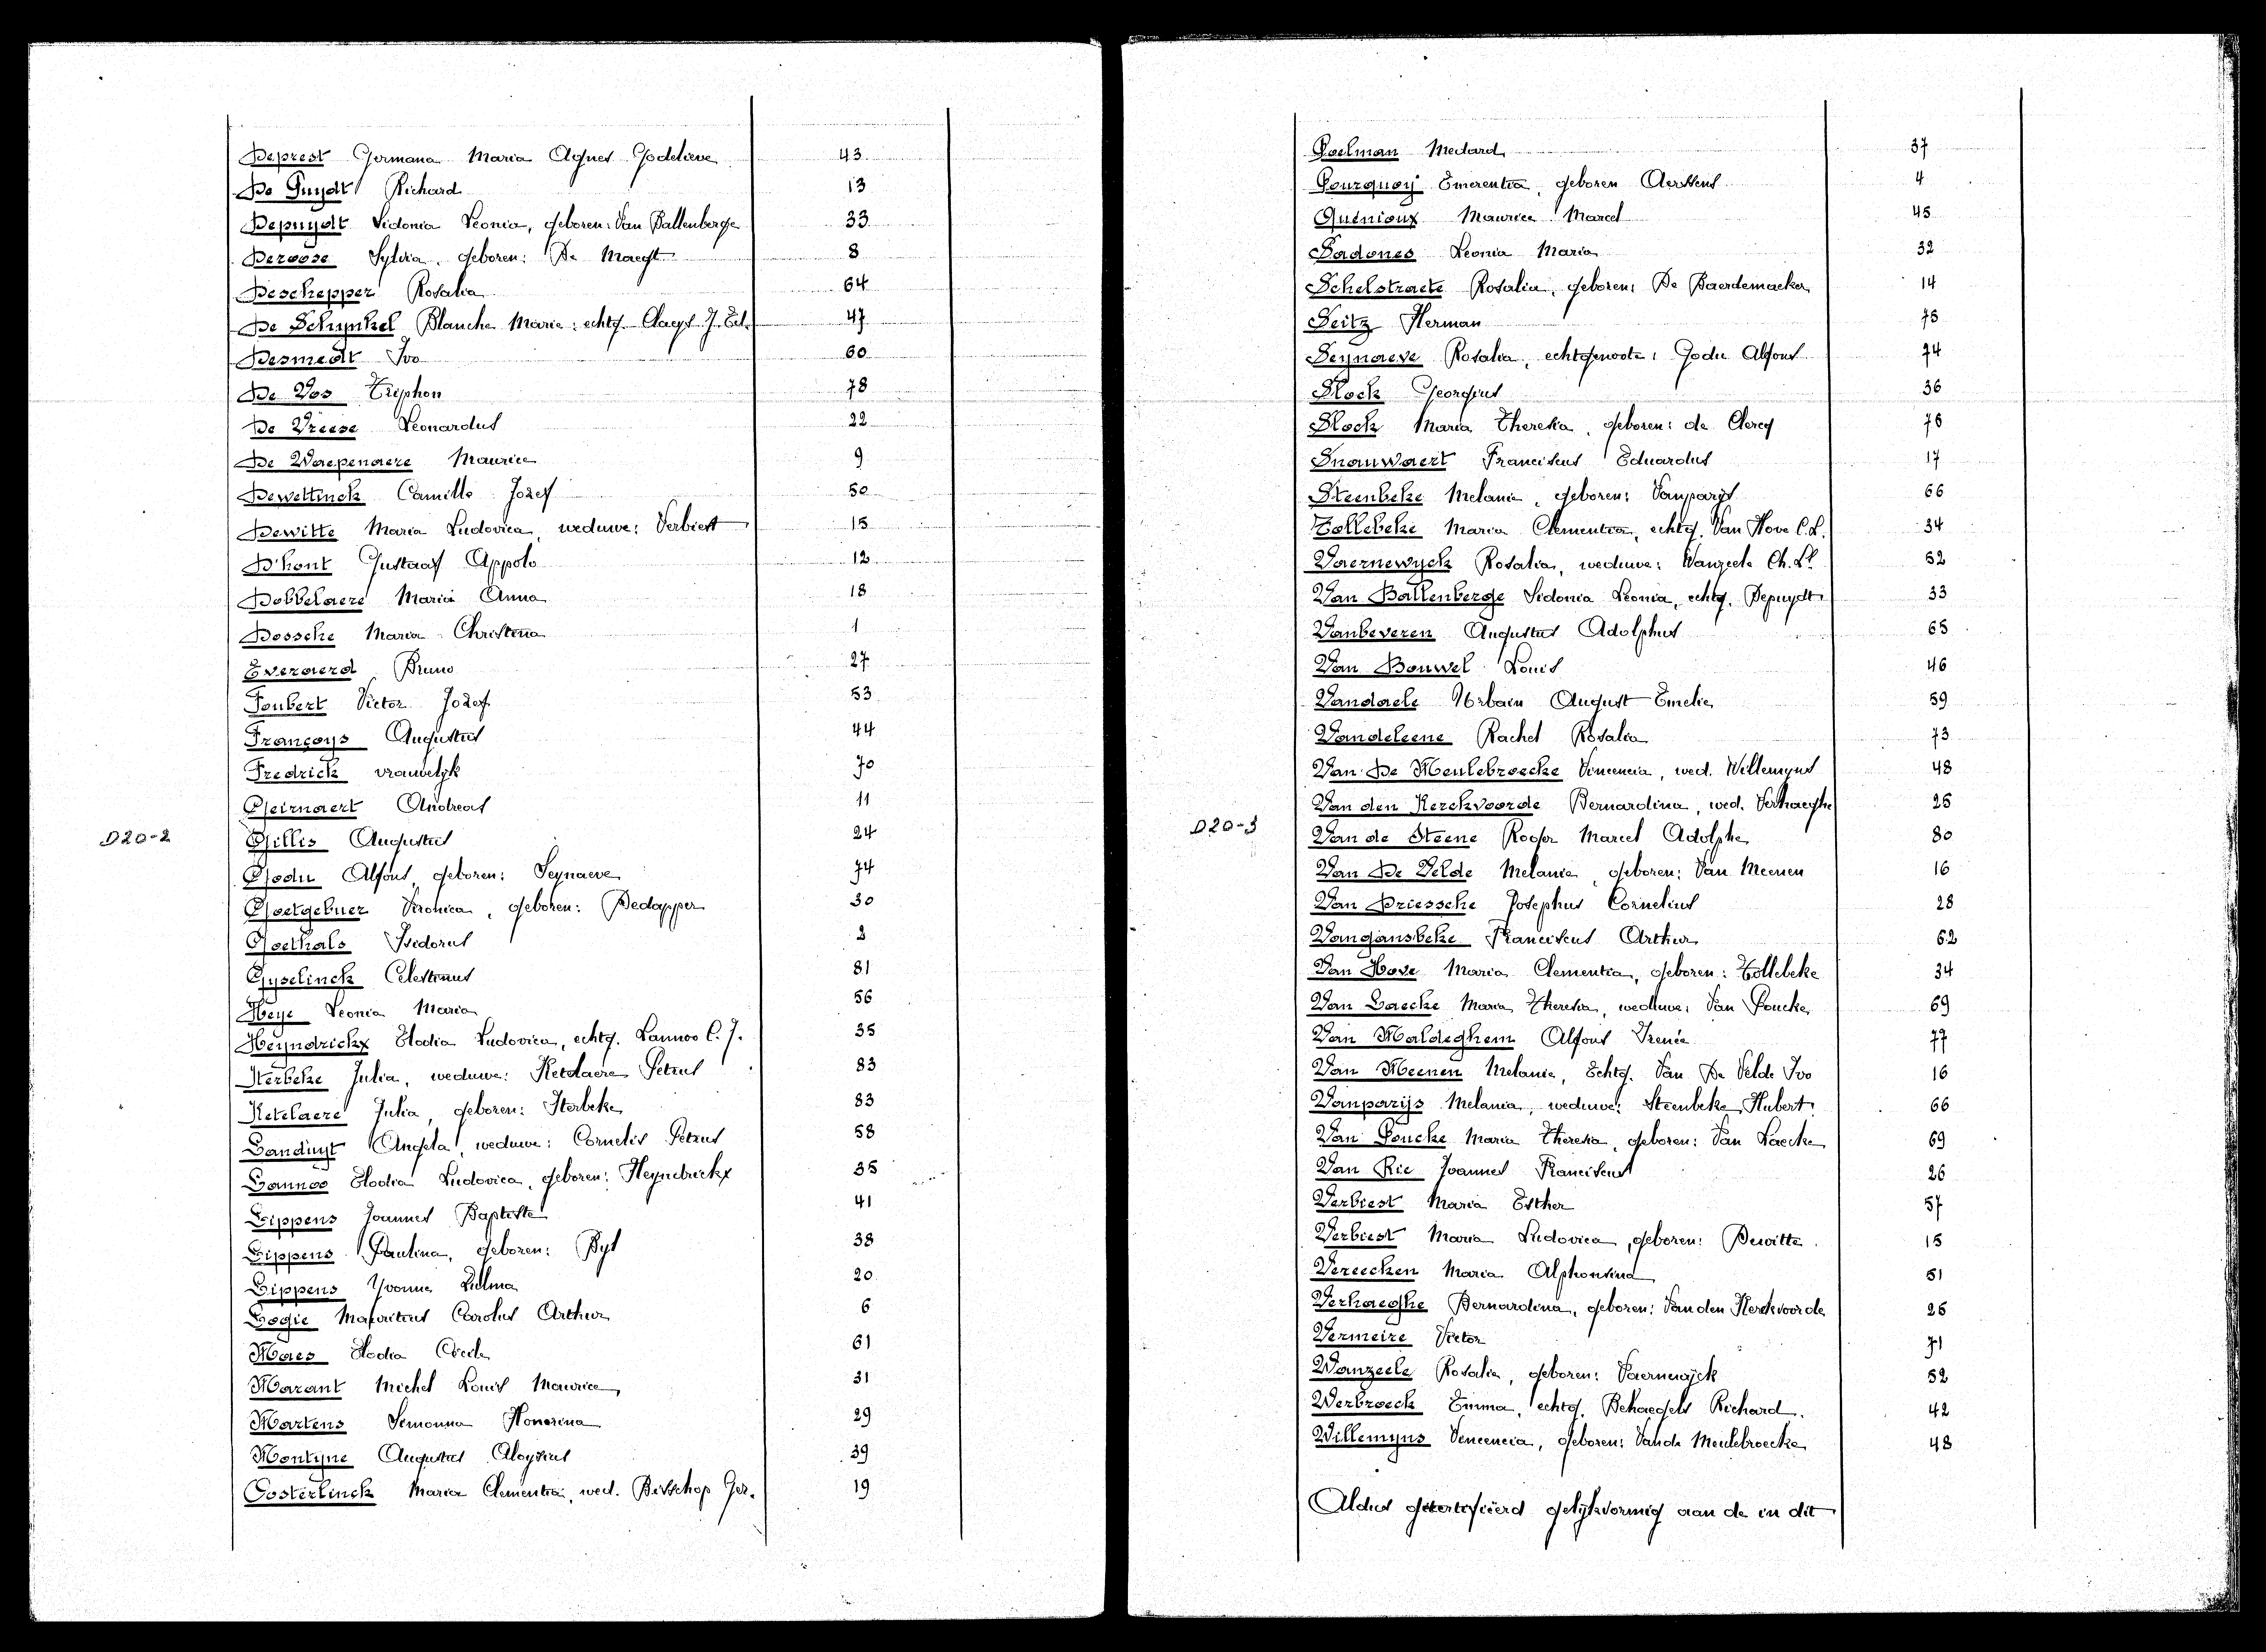 Deprest Germana Maria Agnes Godelieve 43
De Puydt Richard 13
Depuydt Sidonia Leonia, geboren: Van Ballenberge 33
Deroose Sylvia, geboren: De Maegt 8
Deschepper Rosalia 64
De Schynkel Blanche Marie: echtg. Claeys J. Ed. 47
Desmedt Ivo 60
De Vos Triphon 78
De Vriese Leonardus 22
De Waepenaere Maurice 9
Dewettinck Camille Jozef 50
Dewitte Maria Ludovica, weduwe: Verbiest 15
D'hont Gustaaf Appolo 12
Dobbelaere Maria Anna 18
Dossche Maria Christina 1
Everaerd Bruno 27
Foubert Victor Jozef 53
Françoys Augustus 44
Fredrick vrouwelijk 70
Geirnaert Andreas 11
D20-2 Gillis Augustus 24
Godu Alfons, geboren: Seynaeve 74
Goetgebuer Veronica, geboren: Dedapper 30
Goethals Isidorus 2
Gyselinck Celestinus 81
Heye Leonia Maria 56
Heyndrickx Elodia Ludovica, echtg. Lannoo C. J. 35
Iterbeke Julia, weduwe: Ketelaere Petrus 83
Ketelaere Julia, geboren: Iterbeke 83
Landuyt Angela, weduwe: Cornelis Petrus 58
Lannoo Elodia Ludovica, geboren: Heyndrickx 35
Lippens Joannes Baptiste 41
Lippens Paulina, geboren: Byl 38
Lippens Yvonne Zulma 20
Logie Mauritius Carolus Arthur 6
Maes Elodia Cécile 61
Marant Michel Louis Maurice 31
Martens Simonna Honorina 29
Montyne Augustus Aloysius 39
Oosterlinck Maria Clementia, wed. Bisschop Ger. 19
Poelman Medard 37
Pourquoy Emerentia, geboren Aerssens 4
Quénioux Maurice Marcel 45
Sadones Leonia Maria 32
Schelstraete Rosalia, geboren: De Baerdemaeker 14
Seitz Herman 75
Seynaeve Rosalia, echtgenoote: Godu Alfons 74
Slock Georgius 36
Slock Maria Theresia, geboren: de Clercq 76
Snauwaert Franciscus Eduardus 17
Steenbeke Melanie, geboren: Vanparijs 66
Tollebeke Maria Clementia, echtg. Van Hove C.L. 34
Vaernewyck Rosalia, weduwe: Wanzeele Ch. Ls 52
Van Ballenberge Sidonia Leonia, echtg. Depuydt 33
Vanbeveren Augustus Adolphus 65
Van Bouwel Louis 46
Vandaele Urbain August Emelie 59
Vandeleene Rachel Rosalia 73
Van De Meulebroecke Vincencia, wed. Willemyns 48
Van den Kerckvoorde Bernardina, wed. Verhaeghe 25
D20-3 Van de Steene Roger Marcel Adolphe 80
Van De Velde Melanie, geboren: Van Meenen 16
Van Driessche Josephus Cornelius 28
Vangansbeke Franciscus Arthur 62
Van Hove Maria Clementia, geboren: Tollebeke 34
Van Laecke Maria Theresia, weduwe: Van Poucke 69
Van Maldeghem Alfons Irenée 77
Van Meenen Melanie, Echtg. Van De Velde Ivo 16
Vanparijs Melania, weduwe: Steenbeke Hubert 66
Van Poucke Maria Theresia, geboren: Van Laecke 69
Van Rie Joannes Franciscus 26
Verbiest Maria Esther 57
Verbiest Maria Ludovica, geboren: Dewitte 15
Vereecken Maria Alphonsina 51
Verhaeghe Bernardina, geboren: Van den Kerckvoorde 25
Vermeire Victor 71
Wanzeele Rosalia, geboren: Vaernewijck 52
Werbroeck Emma, echtg. Behaegels Richard. 42
Willemyns Vincencia, geboren: Van de Meulebroecke 48
Aldus gecertifiëerd gelijkvormig aan de in dit